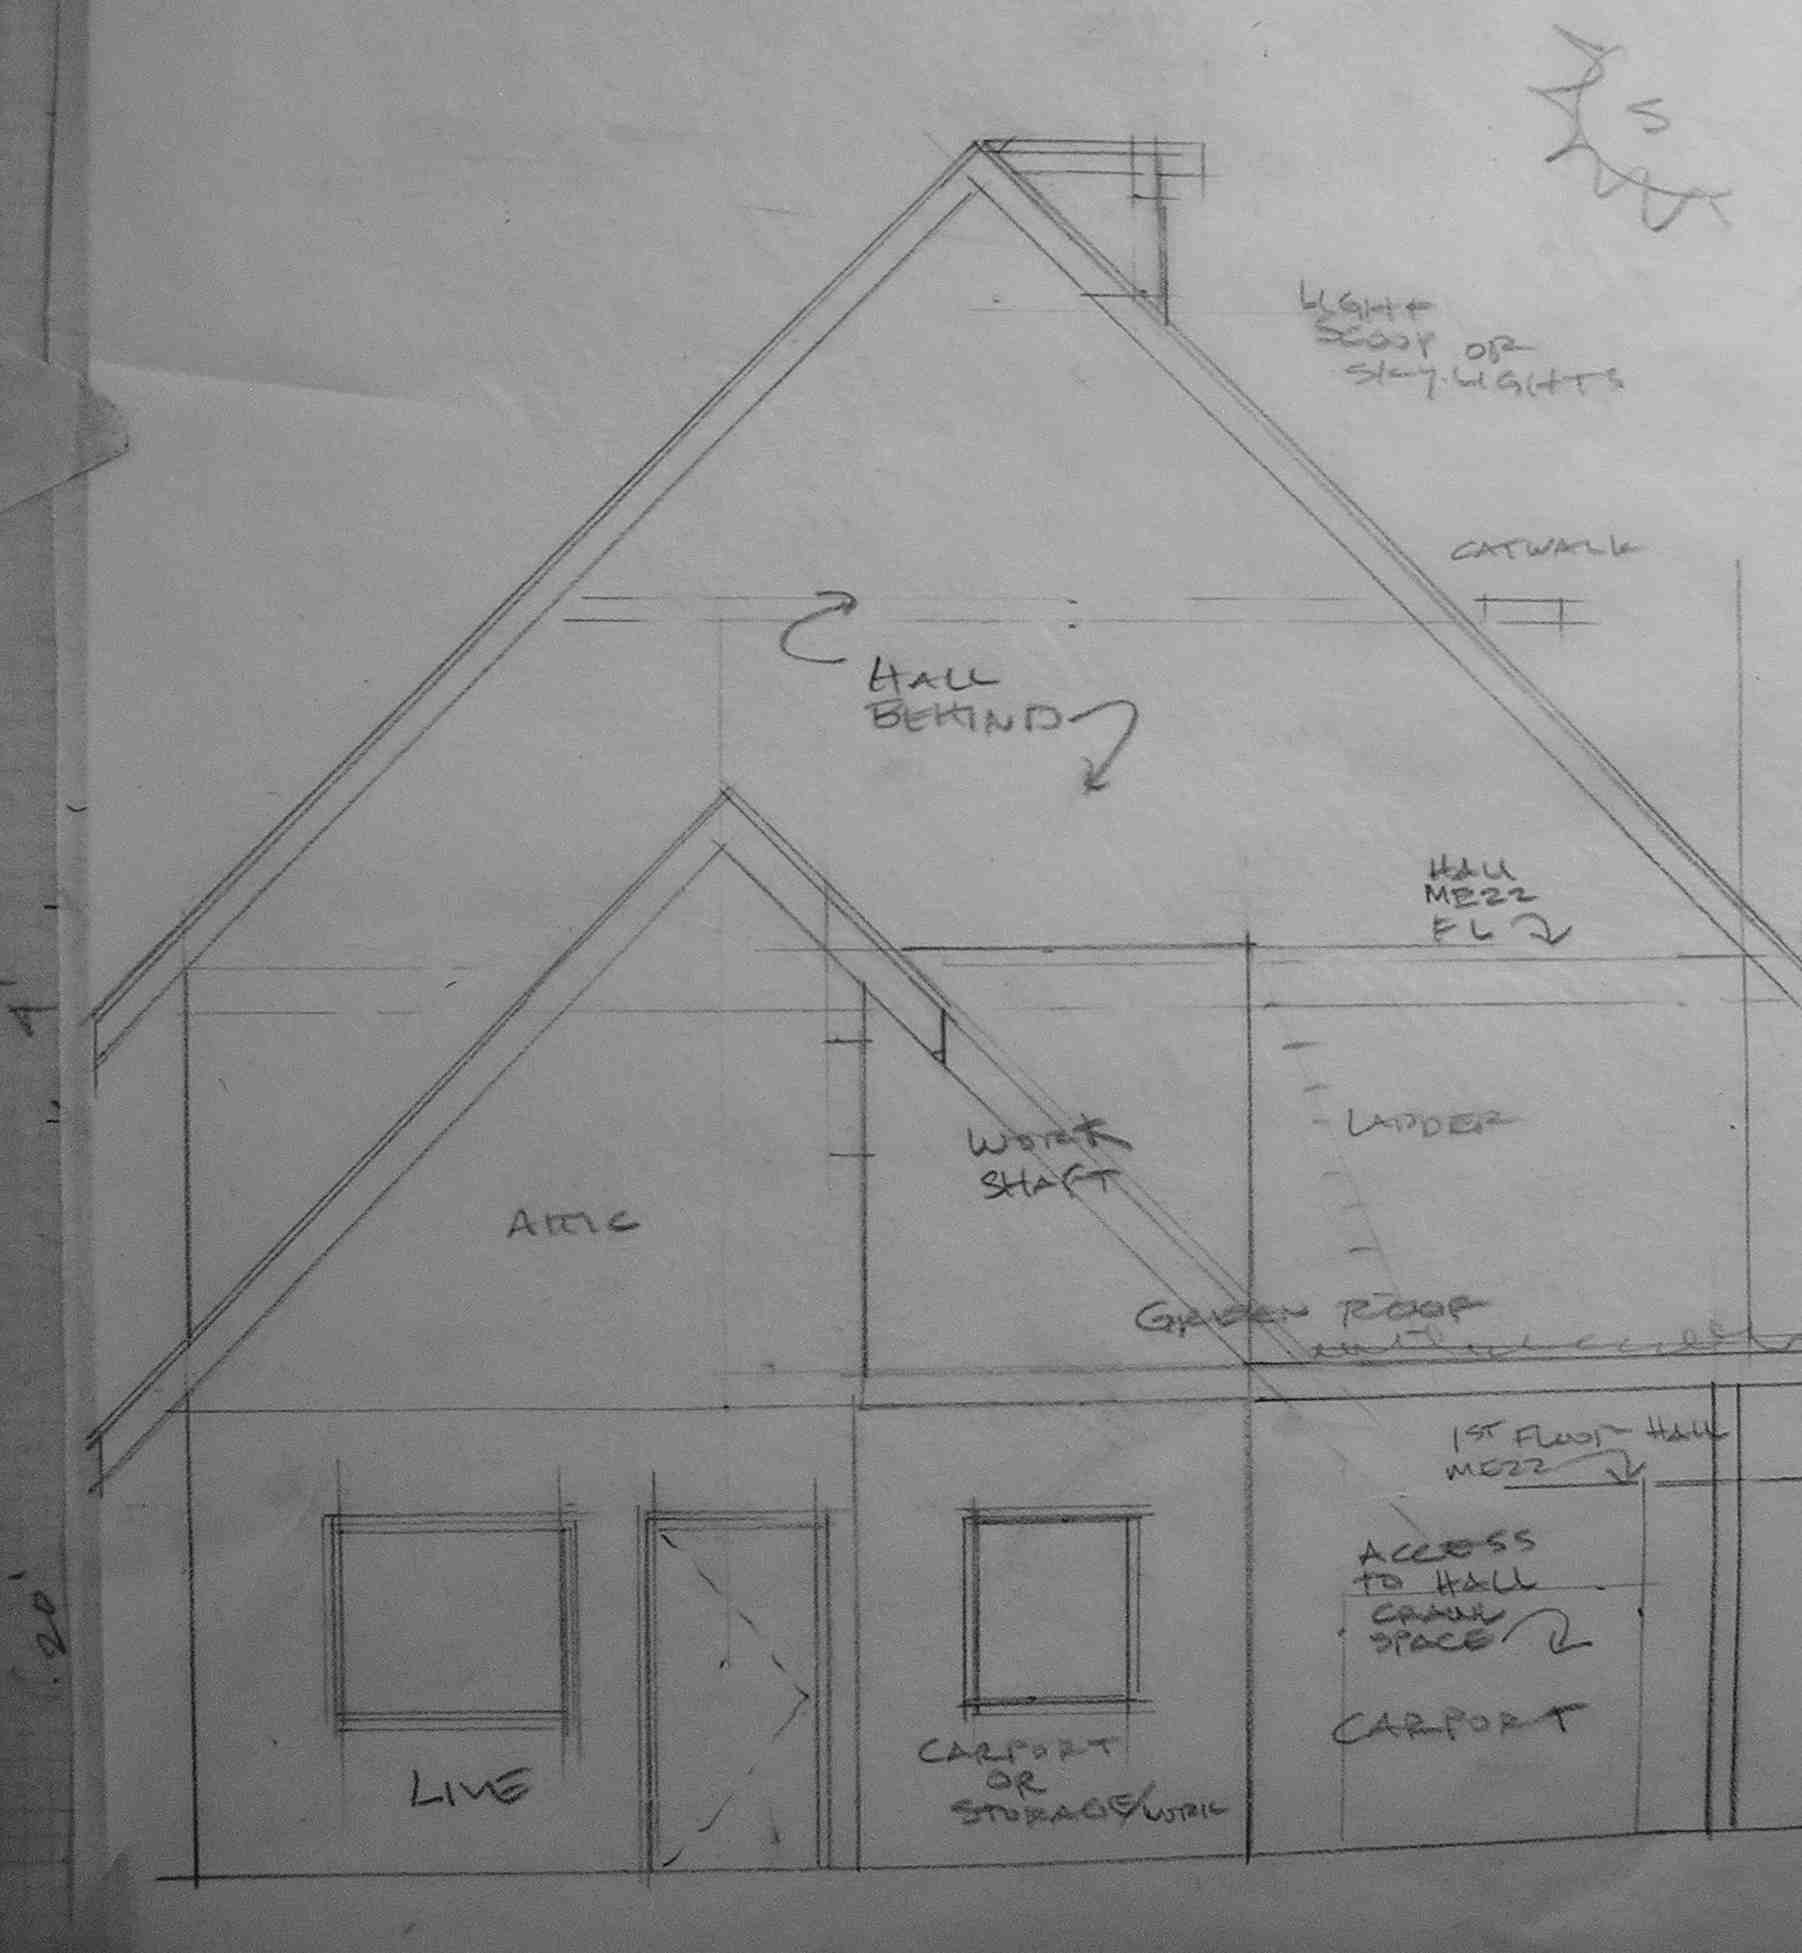 S
LIGHT
SCOOP OR
SKYLIGHTS
CATWALK
HALL
BEHIND
HALL
MEZZ
EL
LADDER
WORK
SHAFT
ATTIC
GREEN ROOF
1ST FLOOR HALL
MEZZ
ACCESS
TO HALL
CRAWL
SPACE
CARPORT
CARPORT
OR
STORAGE/WORK
LIVE
20'